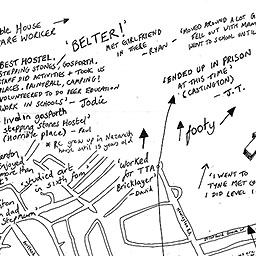 ble House →
ARE WORKER
'BELTER!'
MET GIRLFRIEND
IN THERE
- RYAN -
'MOVED AROUND A LOT
FELL OUT WITH MAM
WENT TO SCHOOL UNTIL
BEST HOSTEL,
STEPPING STONES', GOSFORTH,
STAFF DID ACTIVITIES + TOOK US
PLACES, PAINTBALL, CAMPING!
VOLUNTEERED TO DO PEER EDUCATION
WORK IN SCHOOLS' - Jodie
'ENDED UP IN PRISON
AT THIS TIME'
(CASTINGTON)
- J.T.
lived in gosforth
stepping stones Hostel
(horrible place) - Paul
* RC grew up in Nazareth
house until 15 years old
footy
enjoyed
more than
it'
'studied art
in sixth form'
'Worked
for TTA'
Bricklayer'
- David
'I WENT TO
TYNE MET CO
I DID LEVEL 1
on
dad
stepmum'